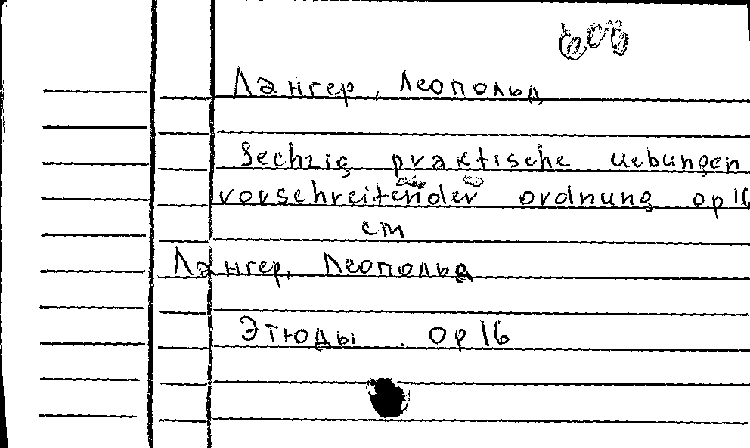 Лангер, Леопольд
Sechzig praktische Uebungen
vorschreitender ordnung op 16
см
Лангер, Леопольд
Этюды. op 16